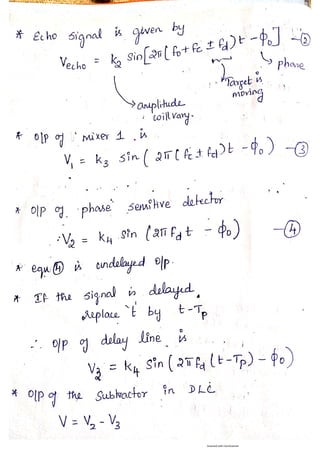 * Echo signal is given by
Vecho = k2 sin[2π(fo+fc ± fd)t - ϕo] - ②
phase
Target is
moving
amplitude
will vary.
* o/p of mixer 1 is
V1 = k3 sin(2π(fc ± fd)t - ϕo) - ③
* o/p of phase sensitive detector
∴V2 = k4 sin(2πfdt - ϕo) - ④
* equ ④ is undelayed o/p.
* If the signal is delayed,
replace 't' by t-Tp
∴ o/p of delay line is
V3 = k4 sin(2πfd(t-Tp) - ϕo)
* o/p of the Subtractor in DLC
V = V2 - V3